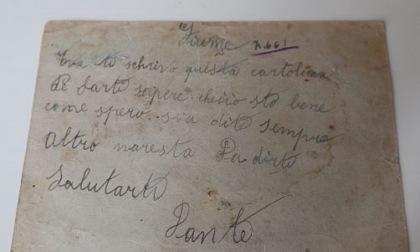 Fiume n. 661
Eva ti schrivo questa cartolina
Pe Farti sapere. chejio sto bene
come spero. sia dite sempre
altro naresta Da dirti
Salutarti
Dante